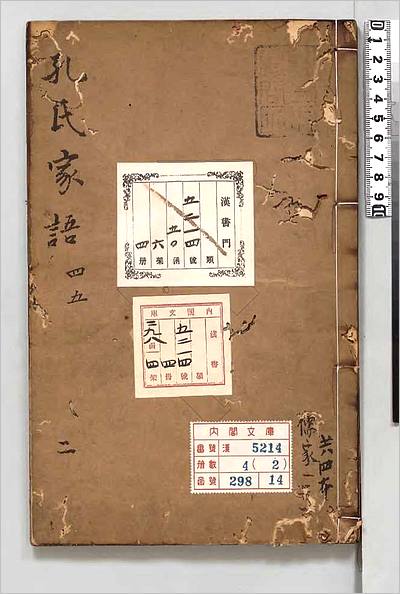 孔氏家語 四五
二
儒家
共四本
漢書門
類
五二一四 號
五〇 函
六 架
四 册
内閣文庫
漢書
五二一四 號
四 册
二九八 函
四 架
内閣文庫
番號 漢 5214
册數 4 ( 2 )
函號 298 14
0 1 2 3 4 5 6 7 8 9 10